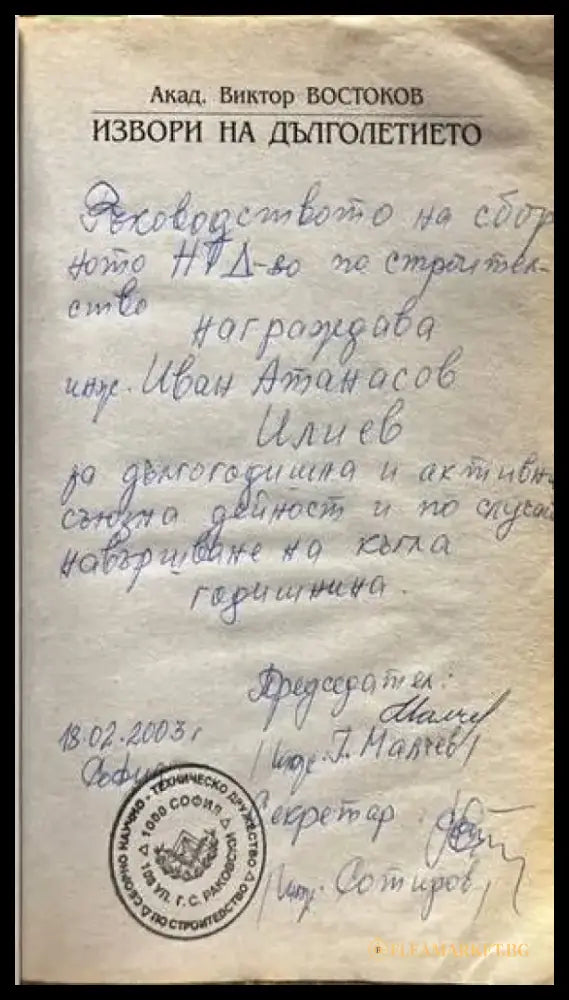 Акад. Виктор ВОСТОКОВ
ИЗВОРИ НА ДЪЛГОЛЕТИЕТО
Ръководството на сбор
ното НТД-во по строител-
ство
награждава
инж. Иван Атанасов
Илиев
за дългогодишна и активна
съюзна дейност и по случай
навършване на кръгла
годишнина.
Председател:
18.02.2003 г
/инж. Г. Малчев/
София
Секретар:
/инж. Сотиров/
СБОРНО НАУЧНО - ТЕХНИЧЕСКО ДРУЖЕСТВО ПО СТРОИТЕЛСТВО
1000 СОФИЯ
108 УЛ. Г. С. РАКОВСКИ
FLEAMARKET.BG